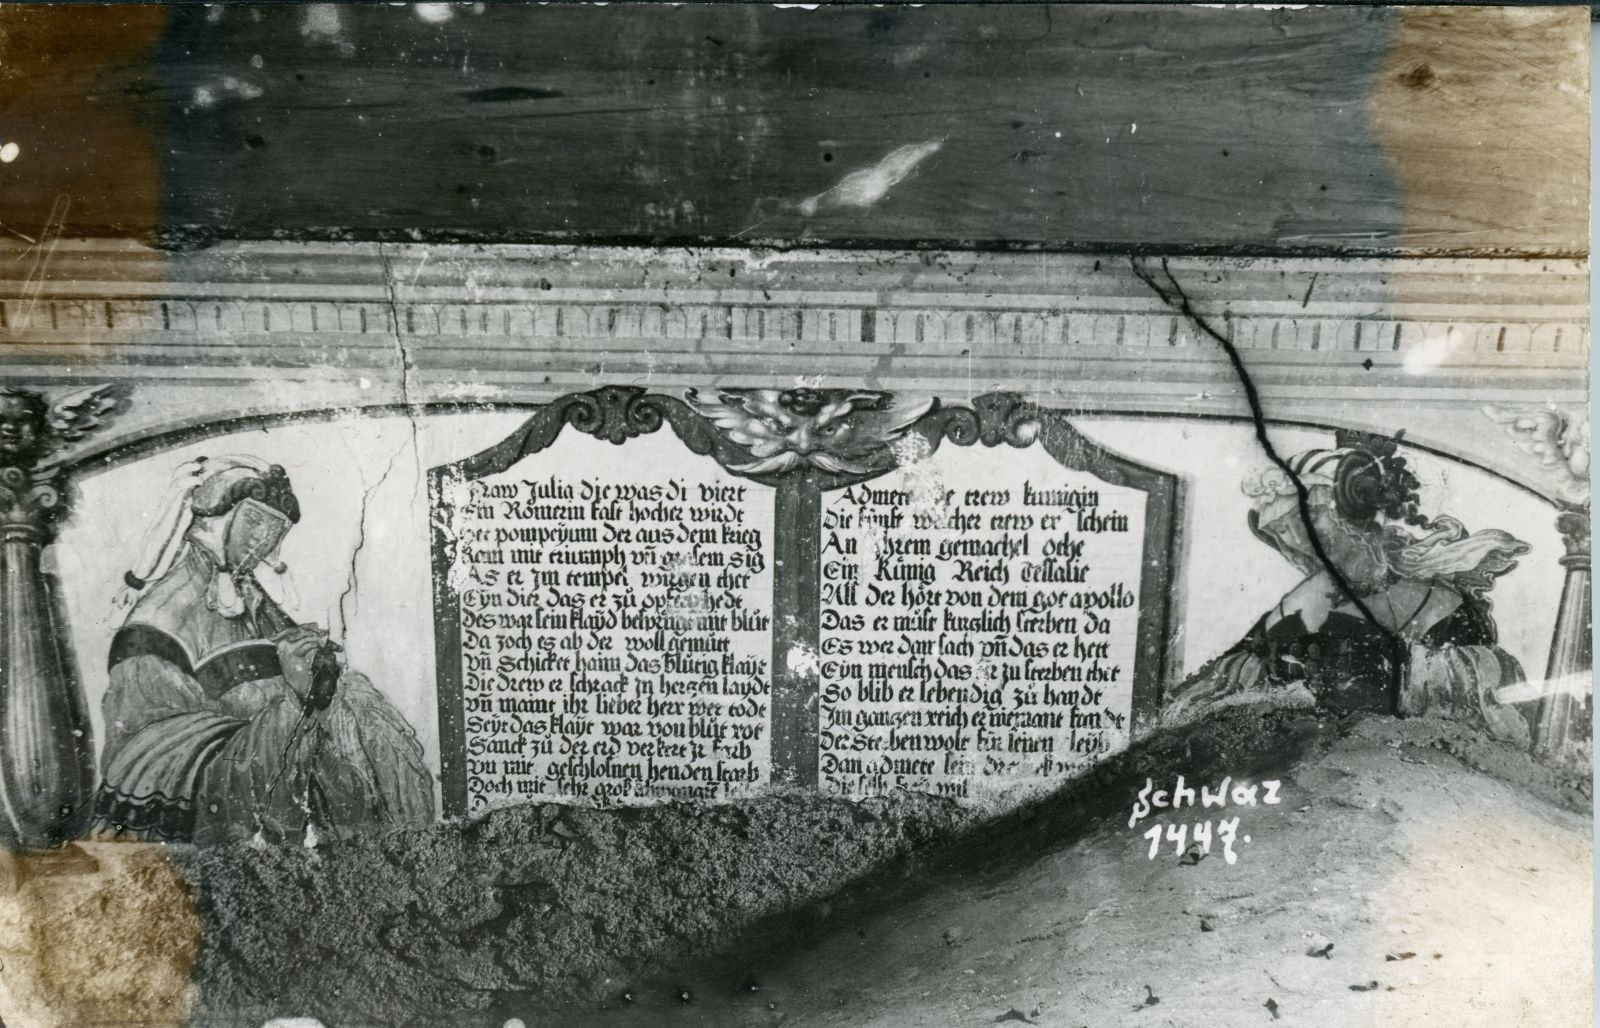 Fraw Julia die was di viert
Ein Römerin fast hocher wirdt
pompeyum der aus dem krieg
Kam mit triumph vn̄ grosem sig
As er Im tempel wirgen thet
Eyn dier das er zů hede
Des war sein klayd besprengt mit blůt
Da zoch es ab der woll gemůtt
Vn̄ schicket haim das blůtig klayt
Die drew er schrack In herzen laydt
Vn̄ maint ihr lieber herr wer todt
Seyt das klayt war von blůt rot
Sanck zů der erd verkert Ir farb
Vn mit geschlosnen henden starb
Doch mit sehr gros
Admete trew kunigin
Die kunst welcher trew er schein
An ihrem gemachel othe
Ein Kůnig Reich Tessalie
Als der hört von dem got apollo
Das er můst kurzlich sterben da
Es wer dan sach vn̄ das er hett
Eyn mensch das zu sterben thet
So blib er lebendig zů handt
Im ganzen reich er niemant fandt
Der Sterben wolt für seinen leyb
Dan admete sein
Die selb wil
Schwaz
1447.